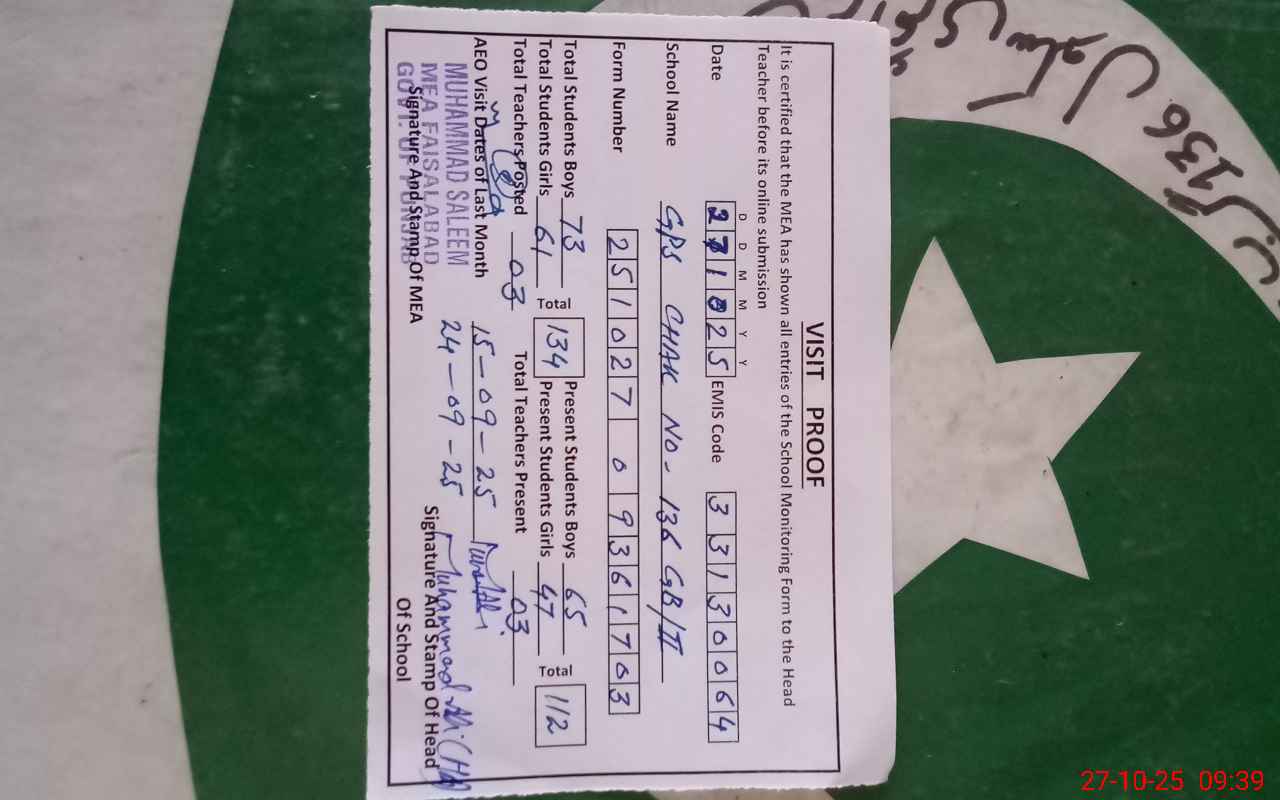 VISIT PROOF
It is certified that the MEA has shown all entries of the School Monitoring Form to the Head
Teacher before its online submission
D D M M Y Y
Date 271025 EMIS Code 33130064
School Name GPS CHAK NO- 136 GB/II
Form Number 2510270936 703
Total Students Boys 73 Present Students Boys 65
Total Students Girls 61 Total 134 Present Students Girls 47 Total 112
Total Teachers Posted 03 Total Teachers Present 03
AEO Visit Dates of Last Month 15-09-25
24-09-25
MUHAMMAD SALEEM
MEA FAISALABAD
GOVT. OF PUNJAB
Signature And Stamp Of MEA
Signature And Stamp Of Head
Of School
Muhammad Ali
136
27-10-25 09:39